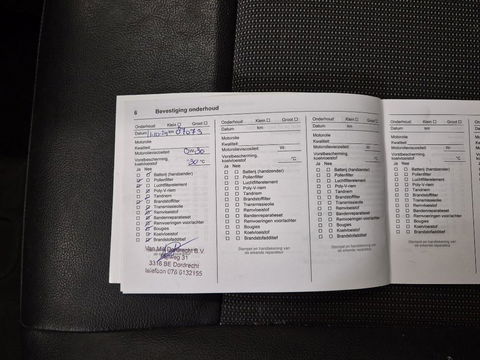 6 Bevestiging onderhoud
Onderhoud Klein Groot
Datum km 07073
Motorolie
Kwaliteit
Motorolieviscositeit 0W30
Vorstbescherming,
koelvloeistof -30 °C
Ja Nee
Batterij (handzender)
Pollenfilter
Luchtfilterelement
Poly-V-riem
Tandriem
Brandstoffilter
Transmissieolie
Remvloeistof
Bandenreparatieset
Remvoeringen voor/achter
Bougies
Koelvloeistof
Brandstofadditief
Van Mill Dordrecht B.V.
weg 31
3316 BE Dordrecht
telefoon 078 6132155
Onderhoud Klein Groot
Datum km
Motorolie
Kwaliteit
Motorolieviscositeit W-
Vorstbescherming,
koelvloeistof °C
Ja Nee
Batterij (handzender)
Pollenfilter
Luchtfilterelement
Poly-V-riem
Tandriem
Brandstoffilter
Transmissieolie
Remvloeistof
Bandenreparatieset
Remvoeringen voor/achter
Bougies
Koelvloeistof
Brandstofadditief
Stempel en handtekening van
de erkende reparateur
Onderhoud Klein Groot
Datum km
Motorolie
Kwaliteit
Motorolieviscositeit W-
Vorstbescherming,
koelvloeistof °C
Ja Nee
Batterij (handzender)
Pollenfilter
Luchtfilterelement
Poly-V-riem
Tandriem
Brandstoffilter
Transmissieolie
Remvloeistof
Bandenreparatieset
Remvoeringen voor/achter
Bougies
Koelvloeistof
Brandstofadditief
Stempel en handtekening van
de erkende reparateur
Onderhoud Klein
Datum
Motorolie
Kwaliteit
Motorolieviscositeit
Vorstbescherming,
koelvloeistof
Ja Nee
Batterij (handzender)
Pollenfilter
Luchtfilterelement
Poly-V-riem
Tandriem
Brandstoffilter
Transmissieolie
Remvloeistof
Bandenreparatieset
Remvoeringen
Bougies
Koelvloeistof
Brandstofadditief
Stempel en handtekening van
de erkende reparateur